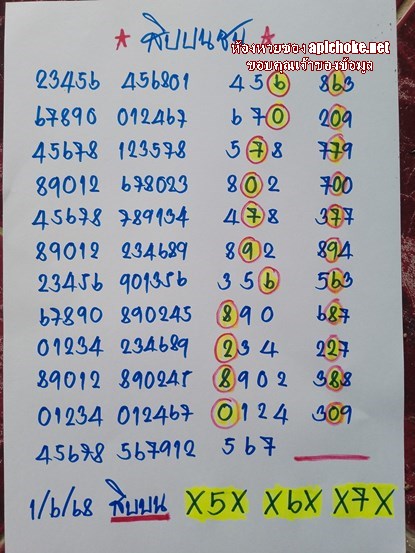 ★ สิบบนชน ★
ห้องหวยของ apichoke.net
ขอบคุณเจ้าของข้อมูล
23456 456801 456 863
67890 012467 670 209
45678 123578 578 779
89012 678023 802 700
45678 789134 478 377
89012 234689 892 894
23456 901356 356 563
67890 890245 890 687
01234 234689 234 227
89012 890245 8902 388
01234 012467 0124 309
45678 567912 567
1/6/68 สิบบน X5X X6X X7X